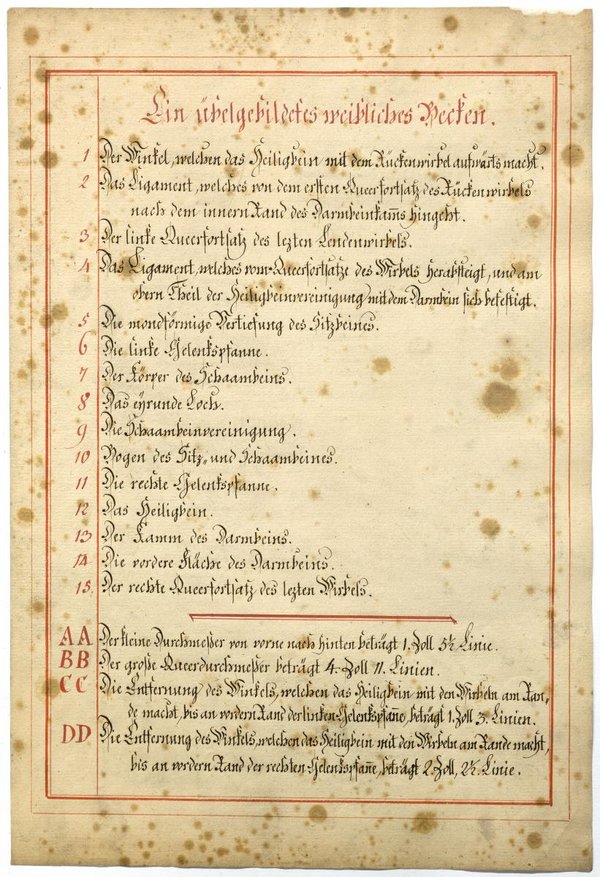 Ein übelgebildetes weibliches Becken.
1 Der Winkel, welchen das Heiligbein mit dem Rückenwirbel aufwärts macht.
2 Das Ligament, welches von dem ersten Queerfortsatz des Rückenwirbels
nach dem innern Rand des Darmbeinkam̅s hingeht.
3 Der linke Queerfortsatz des lezten Lendenwirbels.
4 Das Ligament, welches vom Queerfortsatze des Wirbels herabsteigt, und am
obern Theil der Heiligbeinvereinigung mit dem Darmbein sich befestigt.
5 Die mondförmige Vertiefung des Sitzbeines.
6 Die linke Gelenkspfanne.
7 Der Körper des Schaambeins.
8 Das eyrunde Loch.
9 Die Schaambeinvereinigung.
10 Bogen des Sitz- und Schaambeines.
11 Die rechte Gelenkspfanne.
12 Das Heiligbein.
13 Der Kamm des Darmbeins.
14 Die vordere Fläche des Darmbeins.
15. Der rechte Queerfortsatz des lezten Wirbels.
AA Der kleine Durchmeßer von vorne nach hinten beträgt 1. Zoll 5½ Linie.
BB Der große Queerdurchmeßer beträgt 4. Zoll 11. Linien.
CC Die Entfernung des Winkels, welchen das Heiligbein mit den Wirbeln am Ran-
de macht, bis an vordern Rand der linken Gelenkspfan̅e, beträgt 1. Zoll 3. Linien.
DD Die Entfernung des Winkels, welchen das Heiligbein mit den Wirbeln am Rande macht,
bis an vordern Rand der rechten Gelenkspfan̅e, beträgt 2. Zoll, 2½. Linie.